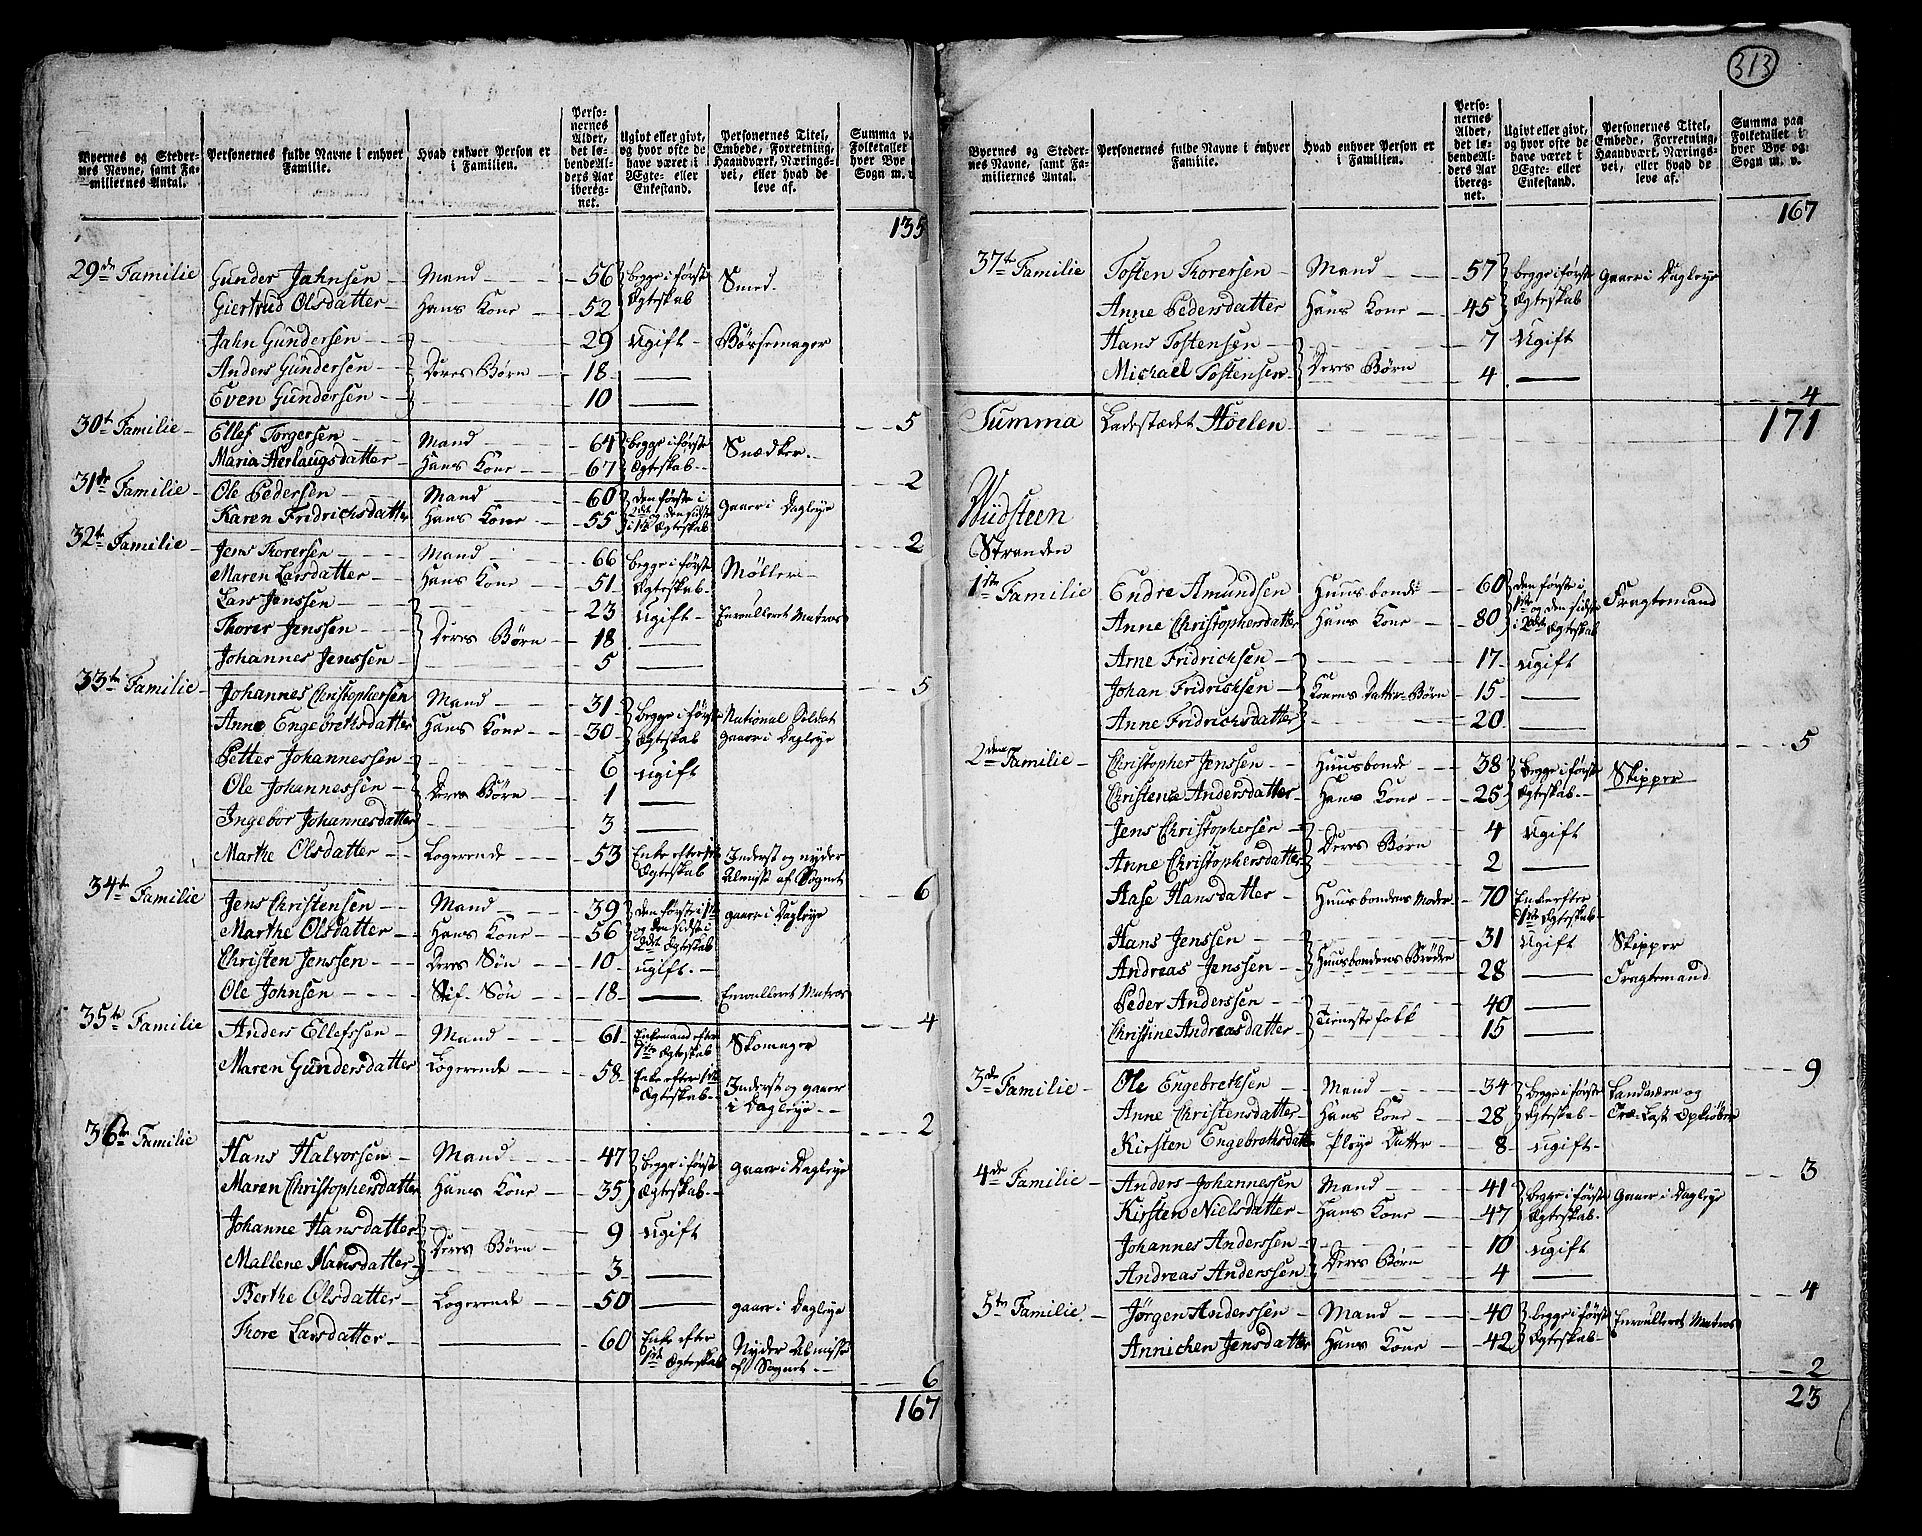 Byernes og Steder-
nes Navne, samt Fa-
miliernes Antal.
Personernes fulde Navne i enhver
Familie.
Hvad enhver Person er
i Familien.
Perso-
nernes
Alder,
det lø-
bende Al-
ders Aar
ibereg-
net.
Ugivt eller givt,
og hvor ofte de
have været i
Ægte- eller
Enkestand.
Personernes Titel,
Embede, Forretning,
Haandværk, Nærings-
vei, eller hvad de
leve af.
Summa paa
Folketallet i
hver Bye og
Sogn m. v.
135
29de Familie Gunder Jahnsen Mand 56 begge i første Ægteskab Smed
Giertrud Olsdatter Hans Kone 52
Jahn Gundersen 29 Ugift Børsemager
Anders Gundersen Deres Børn 18 —
Even Gundersen 10 —
5
30te Familie Ellef Torgersen Mand 64 begge i første Ægteskab Snædker
Maria Herlaugsdatter Hans Kone 67
2
31te Familie Ole Pedersen Mand 60 den første i 2det og den sidste i 1ste Ægteskab Gaaer i Dagleye
Karen Fridrichsdatter Hans Kone 55
2
32te Familie Jens Thorersen Mand 66 begge i første Ægteskab Møller
Maren Larsdatter Hans Kone 51
Lars Jenssen 23 Ugift Enroulleret Matros
Thorer Jenssen Deres Børn 18 —
Johannes Jenssen 5 —
5
33te Familie Johannes Christophersen Mand 31 begge i første Ægteskab National Soldat gaaer i Dagleye
Anne Engebrethsdatter Hans Kone 30
Petter Johannessen 6 ugift
Ole Johannessen Deres Børn 1 —
Ingebor Johannesdatter 3 —
Marthe Olsdatter Logerende 53 Enke efter 1ste Ægteskab Inderst og nyder Almisse af Sognet
6
34te Familie Jens Christensen Mand 39 den første i 1ste og den sidste i 2det Ægteskab gaaer i Dagleye
Marthe Olsdatter Hans Kone 56
Christen Jenssen Deres Søn 10 ugift.
Ole Johnsen Stif-Søn 18 — Enroulleret Matros
4
35te Familie Anders Ellefssen Mand 61 Enkemand efter 1ste Ægteskab Skomager
Maren Gundersdatter Logerende 58 Enke efter 1ste Ægteskab Inderst og gaaer i Dagleye
2
36te Familie Hans Halvorsen Mand 47 begge i første Ægteskab gaaer i Dagleye
Maren Christophersdatter Hans Kone 35
Johanne Hansdatter 9 Ugift
Mallene Hansdatter Deres Børn 3 —
Berthe Olsdatter Logerende 50 — gaaer i Dagleye
Thore Larsdatter — 60 Enke efter 1ste Ægteskab Nyder Almisse af Sognet
6
167
313
Byernes og Steder-
nes Navne, samt Fa-
miliernes Antal.
Personernes fulde Navne i enhver
Familie.
Hvad enhver Person er
i Familien.
Perso-
nernes
Alder,
det lø-
bende Al-
ders Aar
ibereg-
net.
Ugivt eller givt,
og hvor ofte de
have været i
Ægte- eller
Enkestand.
Personernes Titel,
Embede, Forretning,
Haandværk, Nærings-
vei, eller hvad de
leve af.
Summa paa
Folketallet i
hver Bye og
Sogn m. v.
167
37te Familie Tosten Thorersen Mand 57 begge i første Ægteskab Gaaer i Dagleye
Anne Pedersdatter Hans Kone 45
Hans Tostensen 7 Ugift
Michael Tostensen Deres Børn 4 —
4
Summa Ladestædet Høelen 171
Hüdsteen
Stranden
1ste Familie Endre Amundsen Huusbonde 60 den første i 1ste og den sidste i 2det Ægteskab Fragtemand
Anne Christophersdatter Hans Kone 80
Arne Fridrichsen 17 ugift
Johan Fridrichsen Konens Datter-Børn 15 —
Anne Fridrichsdatter 20 —
5
2den Familie Christopher Jenssen Huusbonde 38 begge i første Ægteskab Skipper
Christence Andersdatter Hans Kone 25
Jens Christophersen 4 Ugift
Anne Christophersdatter Deres Børn 2 —
Aase Hansdatter Huusbondens Moder 70 Enke efter 1ste Ægteskab
Hans Jenssen 31 Ugift Skipper
Andreas Jenssen Huusbondens Brødre 28 — Fragtemand
Peder Anderssen 40 —
Christine Andreasdatter Tienestefolk 15 —
9
3de Familie Ole Engebrethsen Mand 34 begge i første Ægteskab Landværn og Træ-Last Opkiøber
Anne Christensdatter Hans Kone 28
Kirsten Engebrethsdatter Pleye Datter 8 ugift
3
4de Familie Anders Johannessen Mand 41 begge i første Ægteskab Gaaer i Dagleye
Kirsten Nielsdatter Hans Kone 47
Johannes Anderssen 10 ugift
Andreas Anderssen Deres Børn 4 —
4
5te Familie Jørgen Anderssen Mand 40 begge i første Ægteskab Enroulleret Matros
Annichen Jensdatter Hans Kone 42
2
23